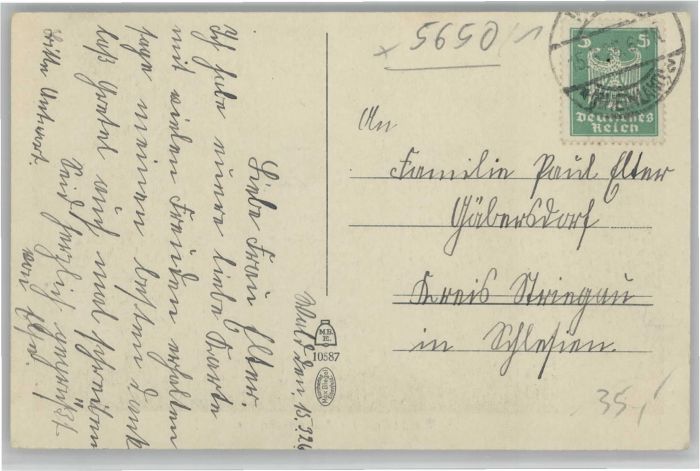 5650/1
5 5
Deutsches
Reich
An
Familie Paul Elter
Gäbersdorf
Kreis Striegau
in Schlesien.
35,-
M.B.
H.
10587
Wald den, 15.9.26
Liebe Frau Elter.
Ich habe eure liebe Karte
mit vielen Freuden erhalten
sage meinen besten Dank
laß Gretel auch mal schreiben
bitte Antwort.
Seid herzlich gegrüßt
von